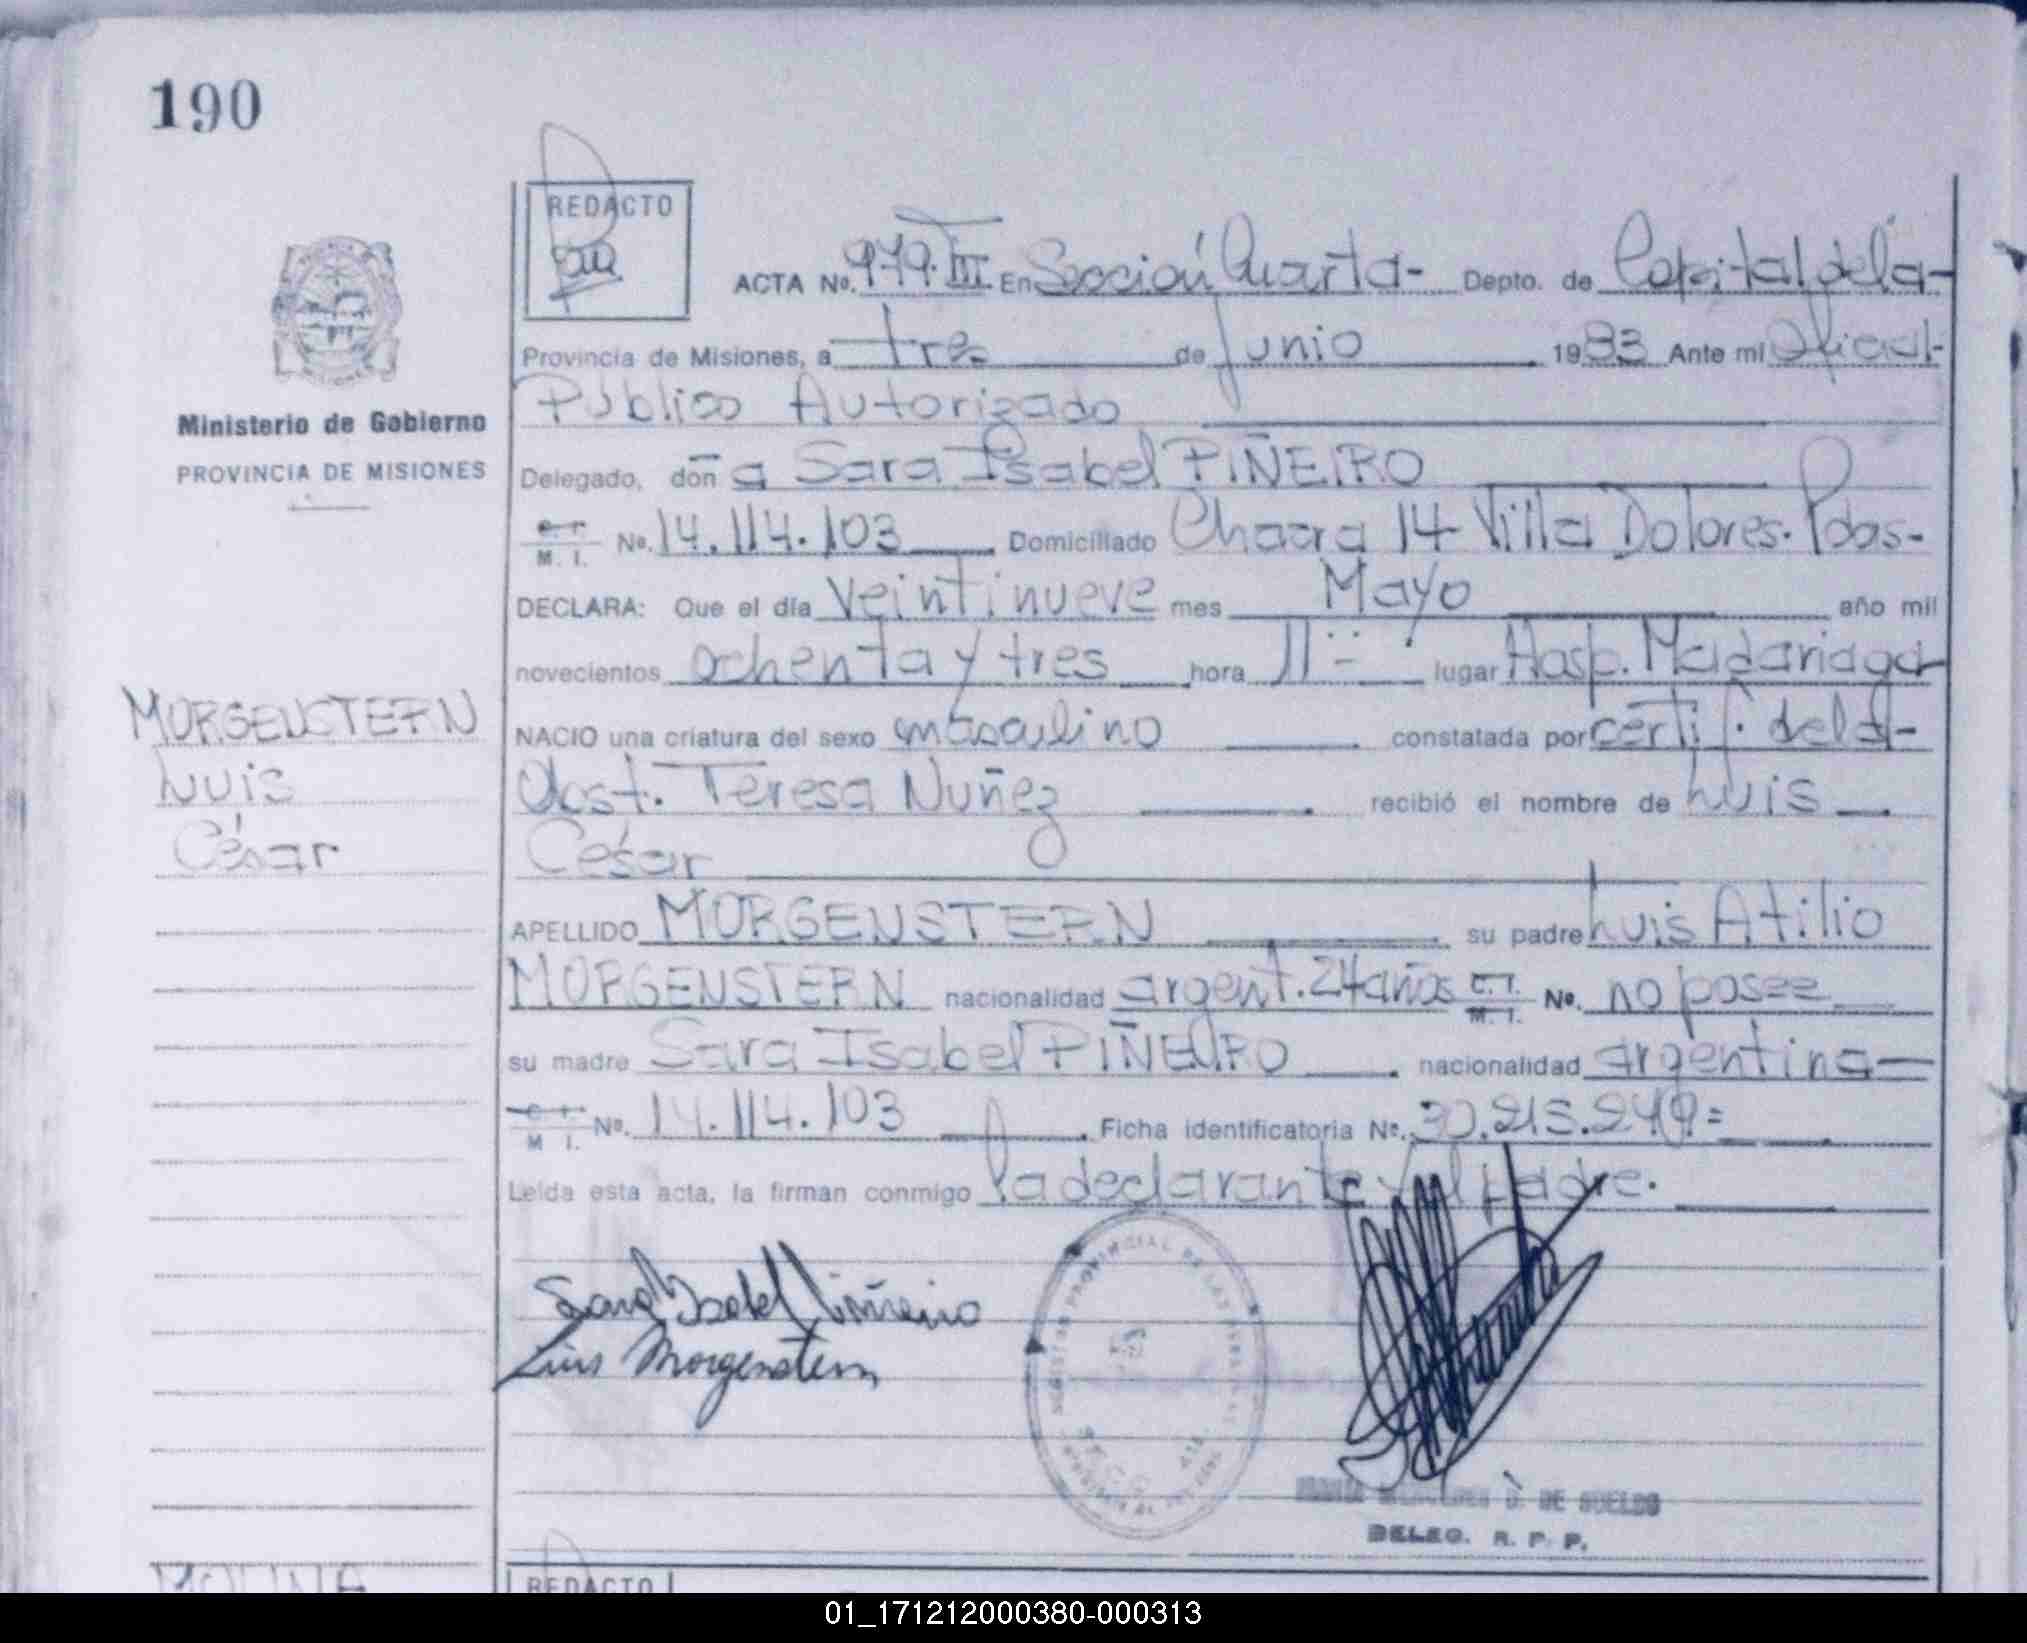 190
REDACTO
ACTA No. 979. III. En Sección Cuarta - Depto. de Capital de la -
Provincia de Misiones, a tres de Junio 1983 Ante mi Oficial -
Público Autorizado
Ministerio de Gobierno
PROVINCIA DE MISIONES
Delegado, doñ a Sara Isabel PIÑEIRO
C. I. M. I. No. 14.114.103 Domiciliado Chacra 14 Villa Dolores. Pdas -
DECLARA: Que el día veintinueve mes Mayo año mil
novecientos ochenta y tres hora 11 lugar Hosp. Madariaga
MORGENSTERN
NACIO una criatura del sexo masculino constatada por certif. de la -
Luis
Obst. Teresa Nuñez recibió el nombre de Luis
César
César
APELLIDO MORGENSTERN su padre Luis Atilio
MORGENSTERN nacionalidad argent. 24 años C. I. M. I. No. no posee
su madre Sara Isabel PIÑEIRO nacionalidad argentina
C. I. M. I. No. 14.114.103 Ficha identificatoria No. 30.213.249.=
Leída esta acta, la firman conmigo la declarante y el padre.
Sara Isabel Piñeiro
Luis Morgenstern
DE SUELDO
DELEG. R. P. P.
MOLINA
REDACTO
01_171212000380-000313